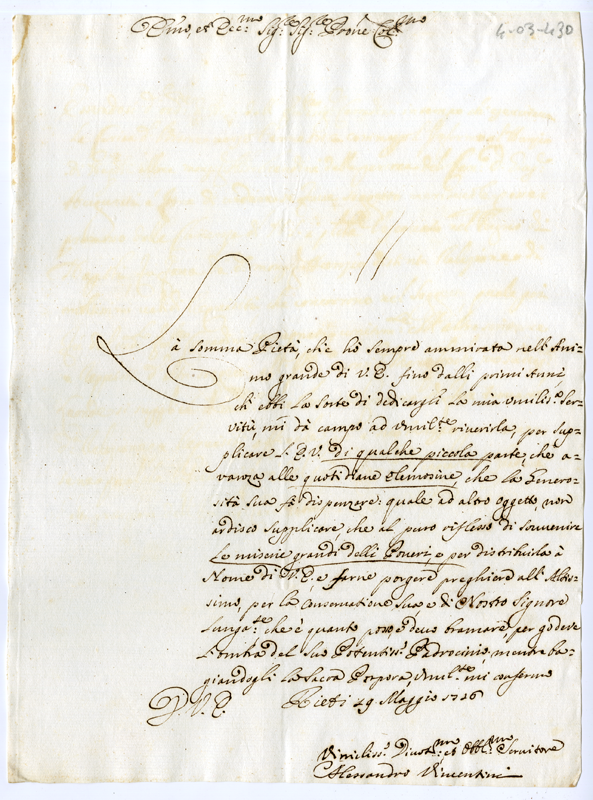 4-03-430
Em̃o, et Rev:mo Sig:r Sig:r Pron̄e Col:mo
La somma Pietà, che hò sempre ammirata nell'Ani-
mo grande di V. E. fino dalli primi Anni,
ch'ebbi la sorte di dedicargli la mia umiliss:a Ser-
vitù, mi dà campo ad umilm:te riverirla, per sup-
plicare l'E.V. di qualche piccola parte, che a-
vanza alle quotidiane elemosine, che la Genero-
sità sua fà dispenzare: quale ad altro oggetto, non
ardisco supplicare, che al puro riflesso di souvenire
le miserie grandi delli Poveri, e per distribuirla à
Nome di V. E., e farne porgere preghiere all'Altis-
simo, per la Conservatione Sua, e di Nostro Signore
lunga:te, che è quanto posso, e devo bramare, per godere
l'ombra del Suo Potentiss:o Padrocinio, mentre ba-
giandogli la Sacra Porpora umilm:te mi confermo
D. V. E. Rieti 29 Maggio 1726
Umiliss:o Divot:mo et Obbl:mo Servitore
Alessandro Vincentini